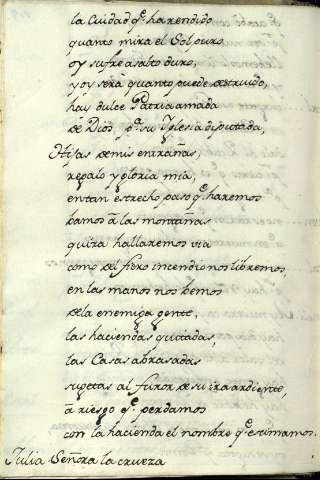 la Cuidad q.^e ha rendido
quanto mira el Sol puro
oy sufre asalto duro,
y oy será quanto puede destruido,
hay dulce Patria amada
de Dios, p.^a su Iglesia disputada,
Hijas de mis entrañas,
regalo y gloria mia,
en tan estrecho paso q.^e haremos
bamos à las montañas
quiza hallaremos via
como del fiero incendio nos libremos,
en las manos nos bemos
de la enemiga gente,
las haciendas quitadas,
las Casas abrasadas
sugetas al furor de su ira ardiente,
à riesgo q.^e perdamos
con la hacienda el nombre q.^e estimamos.
Julia Señora la crueza